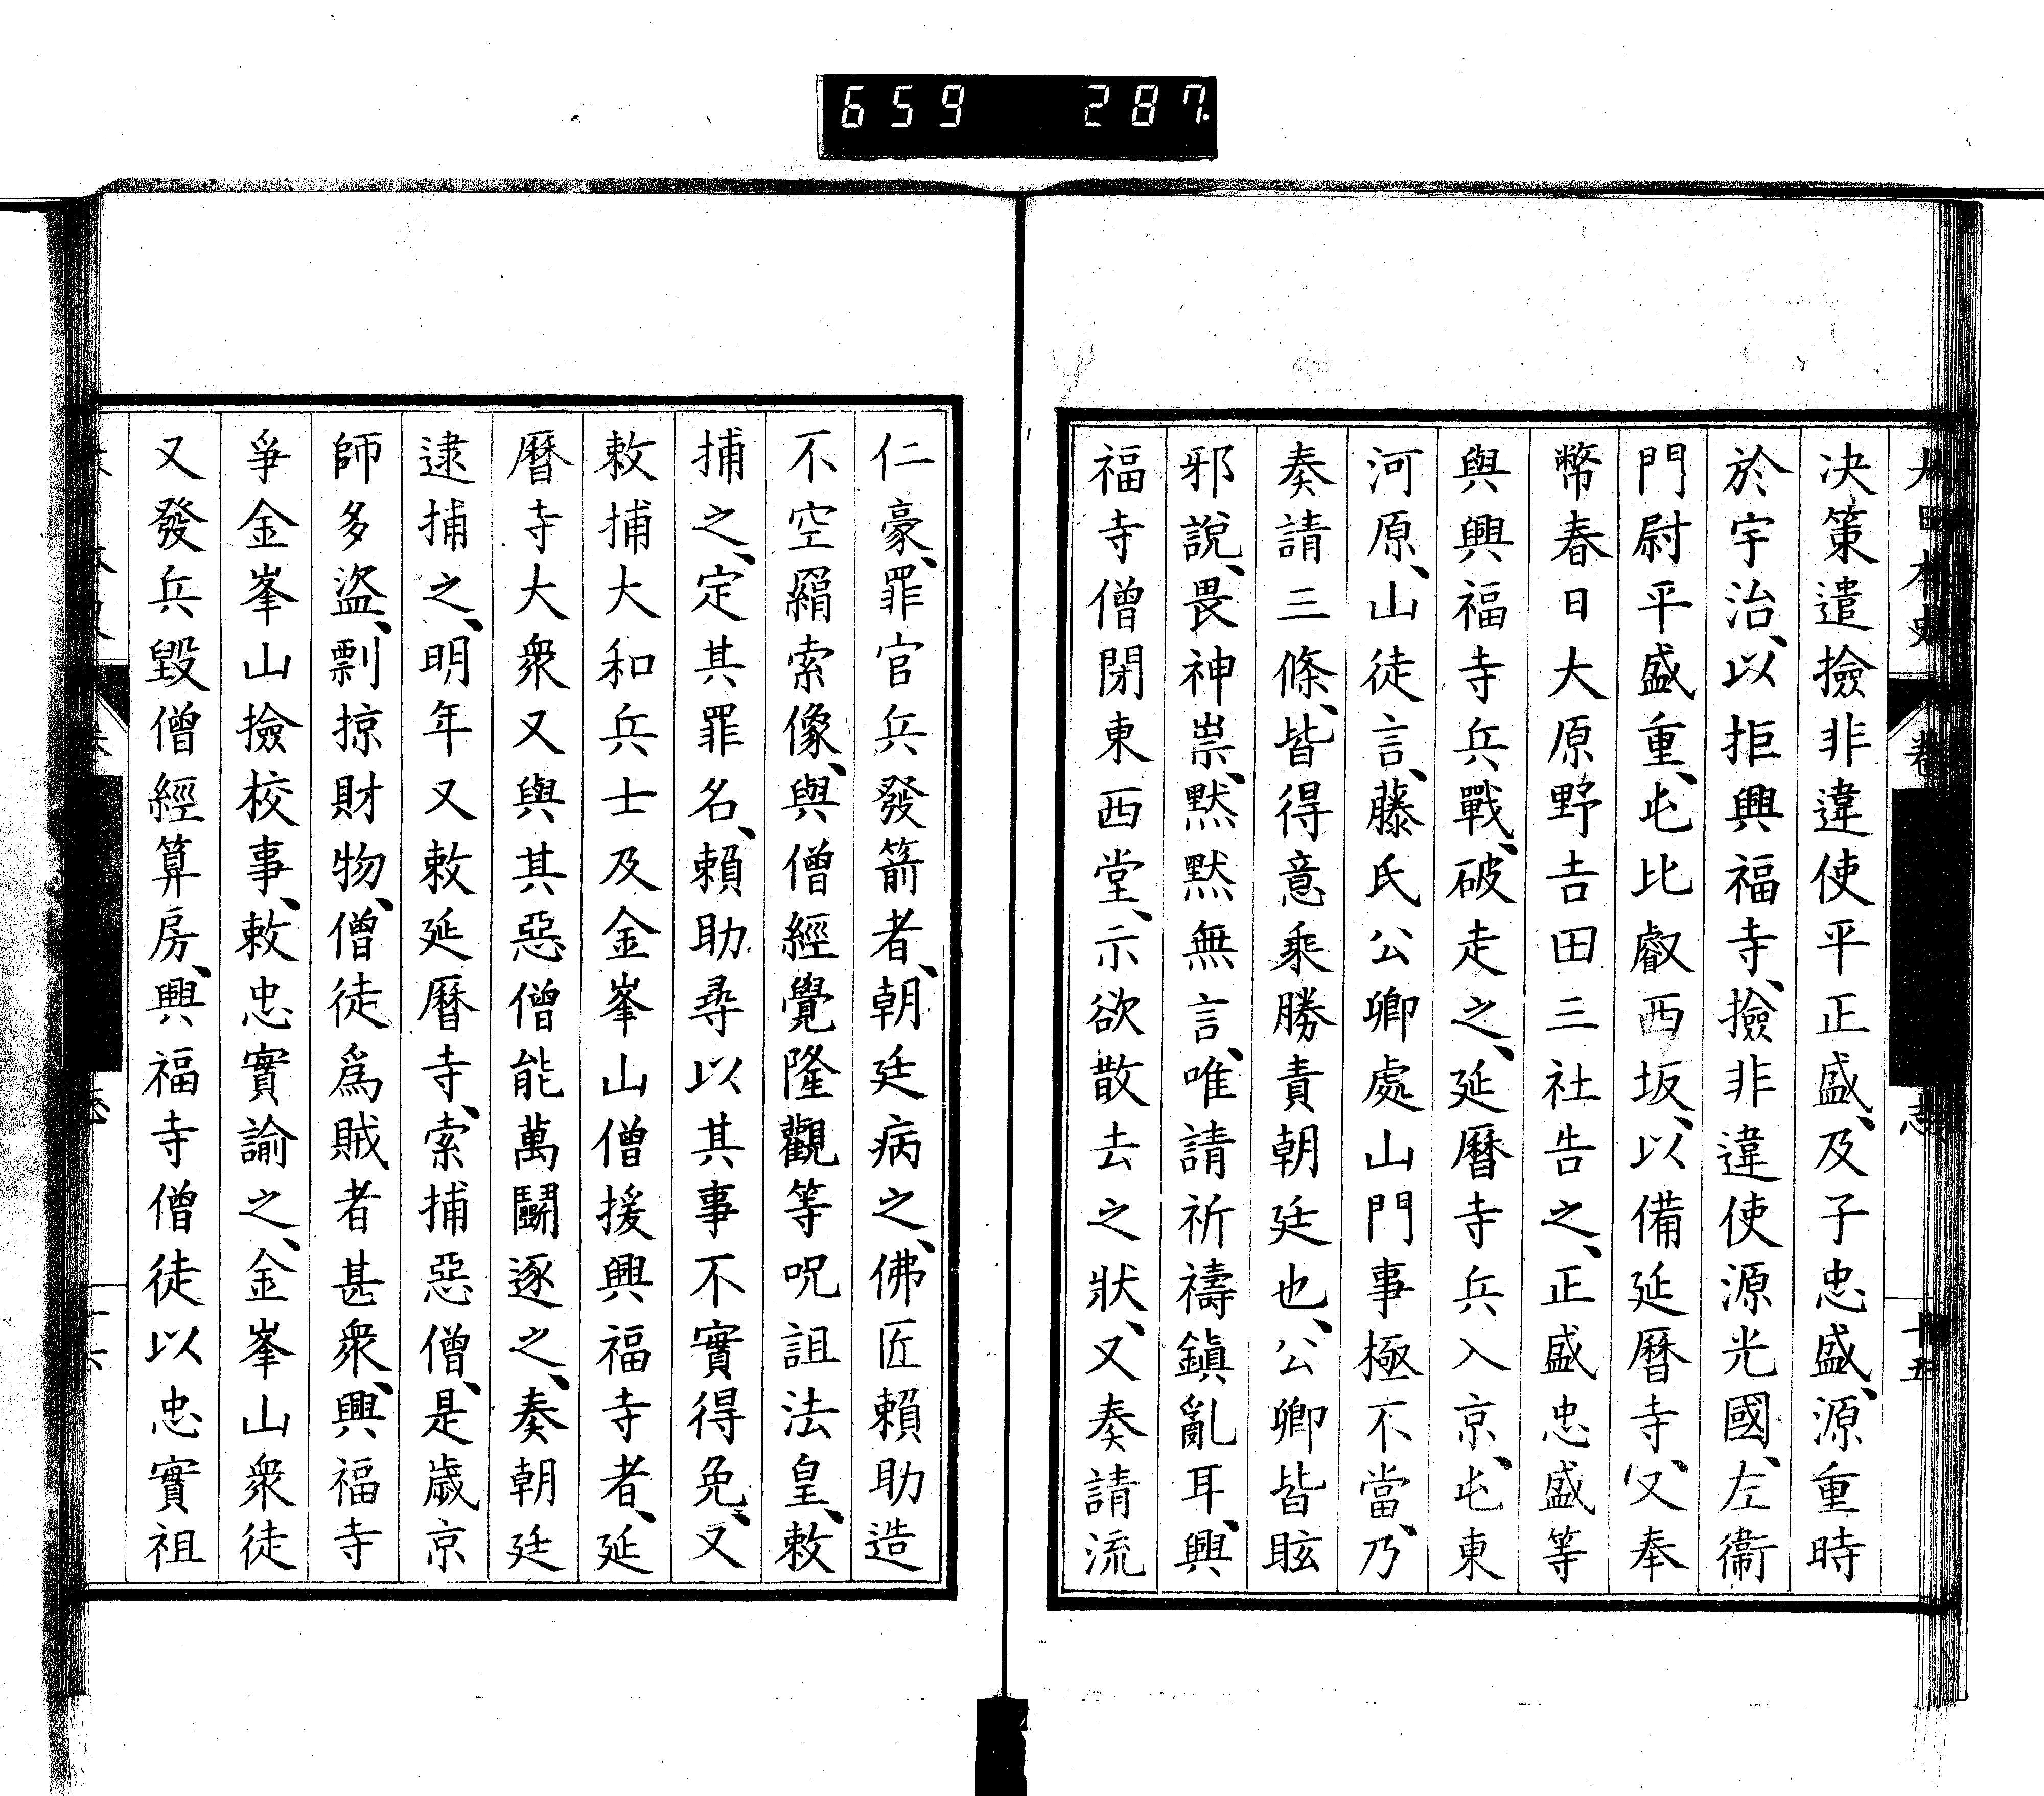 659 287.
决策遣撿非違使平正盛、及子忠盛、源重時
於宇治、以拒興福寺、撿非違使源光國、左衞
門尉平盛重、屯比叡西坂、以備延曆寺、又奉
幣春日大原野吉田三社告之、正盛忠盛等
與興福寺兵戰、破走之、延曆寺兵入京、屯東
河原、山徒言、藤氏公卿處山門事極不當、乃
奏請三條、皆得意乘勝責朝廷也、公卿皆眩
邪說、畏神祟、默默無言、唯請祈禱鎭亂耳、興
福寺僧閉東西堂、示欲散去之狀、又奏請流
仁豪、罪官兵發箭者、朝廷病之、佛匠賴助造
不空羂索像、與僧經覺隆觀等呪詛法皇、敕
捕之、定其罪名、賴助尋以其事不實得免、又
敕捕大和兵士及金峯山僧援興福寺者、延
曆寺大衆又與其惡僧能萬鬭逐之、奏朝廷
逮捕之、明年又敕延曆寺、索捕惡僧、是歲京
師多盜、剽掠財物、僧徒爲賊者甚衆、興福寺
爭金峯山撿校事、敕忠實諭之、金峯山衆徒
又發兵毀僧經算房、興福寺僧徒以忠實祖